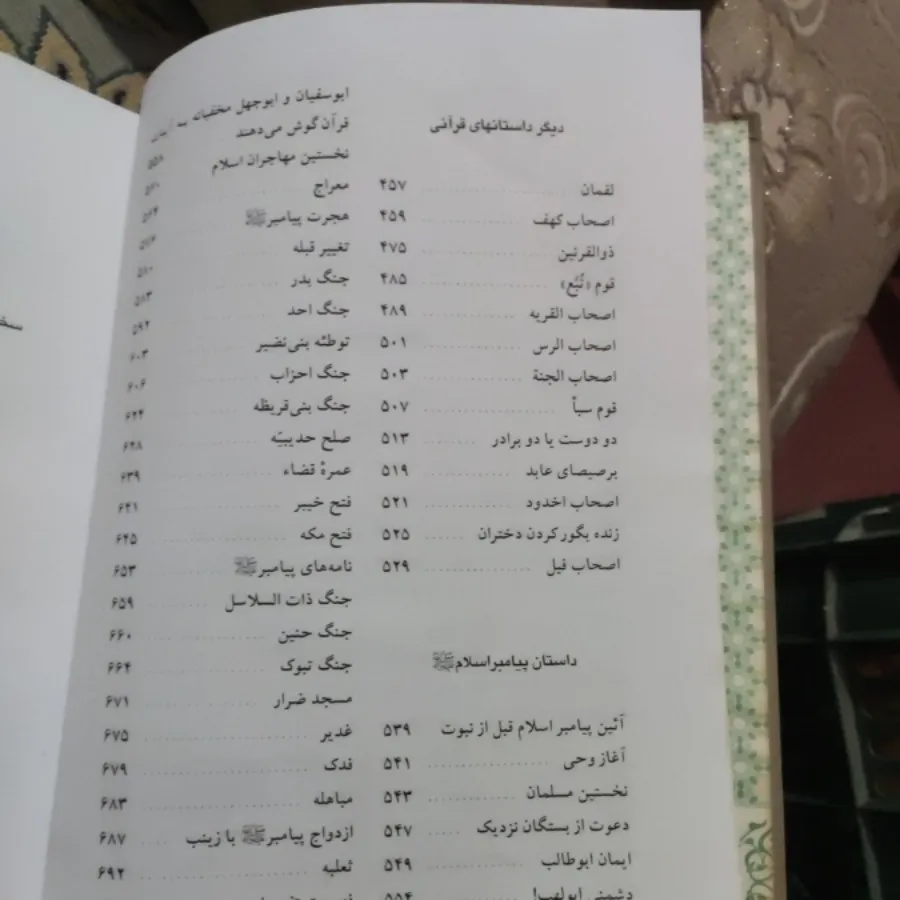 دیگر داستانهای قرآنی
لقمان ۴۵۷
اصحاب کهف ۴۵۹
ذوالقرنین ۴۷۵
قوم «تُبَّع» ۴۸۵
اصحاب القریه ۴۸۹
اصحاب الرس ۵۰۱
اصحاب الجنة ۵۰۳
قوم سبأ ۵۰۷
دو دوست یا دو برادر ۵۱۳
برصیصای عابد ۵۱۹
اصحاب اخدود ۵۲۱
زنده بگور کردن دختران ۵۲۵
اصحاب فیل ۵۲۹
داستان پیامبر اسلام ﷺ
آئین پیامبر اسلام قبل از نبوت ۵۳۹
آغاز وحی ۵۴۱
نخستین مسلمان ۵۴۳
دعوت از بستگان نزدیک ۵۴۷
ایمان ابوطالب ۵۴۹
دشمنی ابولهب! ۵۵۴
ابوسفیان و ابوجهل مخفیانه به
قرآن گوش می‌دهند ۵۵۸
نخستین مهاجران اسلام
معراج
هجرت پیامبر ﷺ
تغییر قبله
جنگ بدر
جنگ احد ۵۹۲
توطئه بنی‌نضیر ۶۰۳
جنگ احزاب ۶۰۶
جنگ بنی‌قریظه ۶۲۴
صلح حدیبیّه ۶۲۸
عمرهٔ قضاء ۶۳۹
فتح خیبر ۶۴۱
فتح مکه ۶۴۵
نامه‌های پیامبر ﷺ ۶۵۳
جنگ ذات السلاسل ۶۵۹
جنگ حنین ۶۶۰
جنگ تبوک ۶۶۴
مسجد ضرار ۶۷۱
غدیر ۶۷۵
فدک ۶۷۹
مباهله ۶۸۳
ازدواج پیامبر ﷺ با زینب ۶۸۷
ثعلبه ۶۹۲